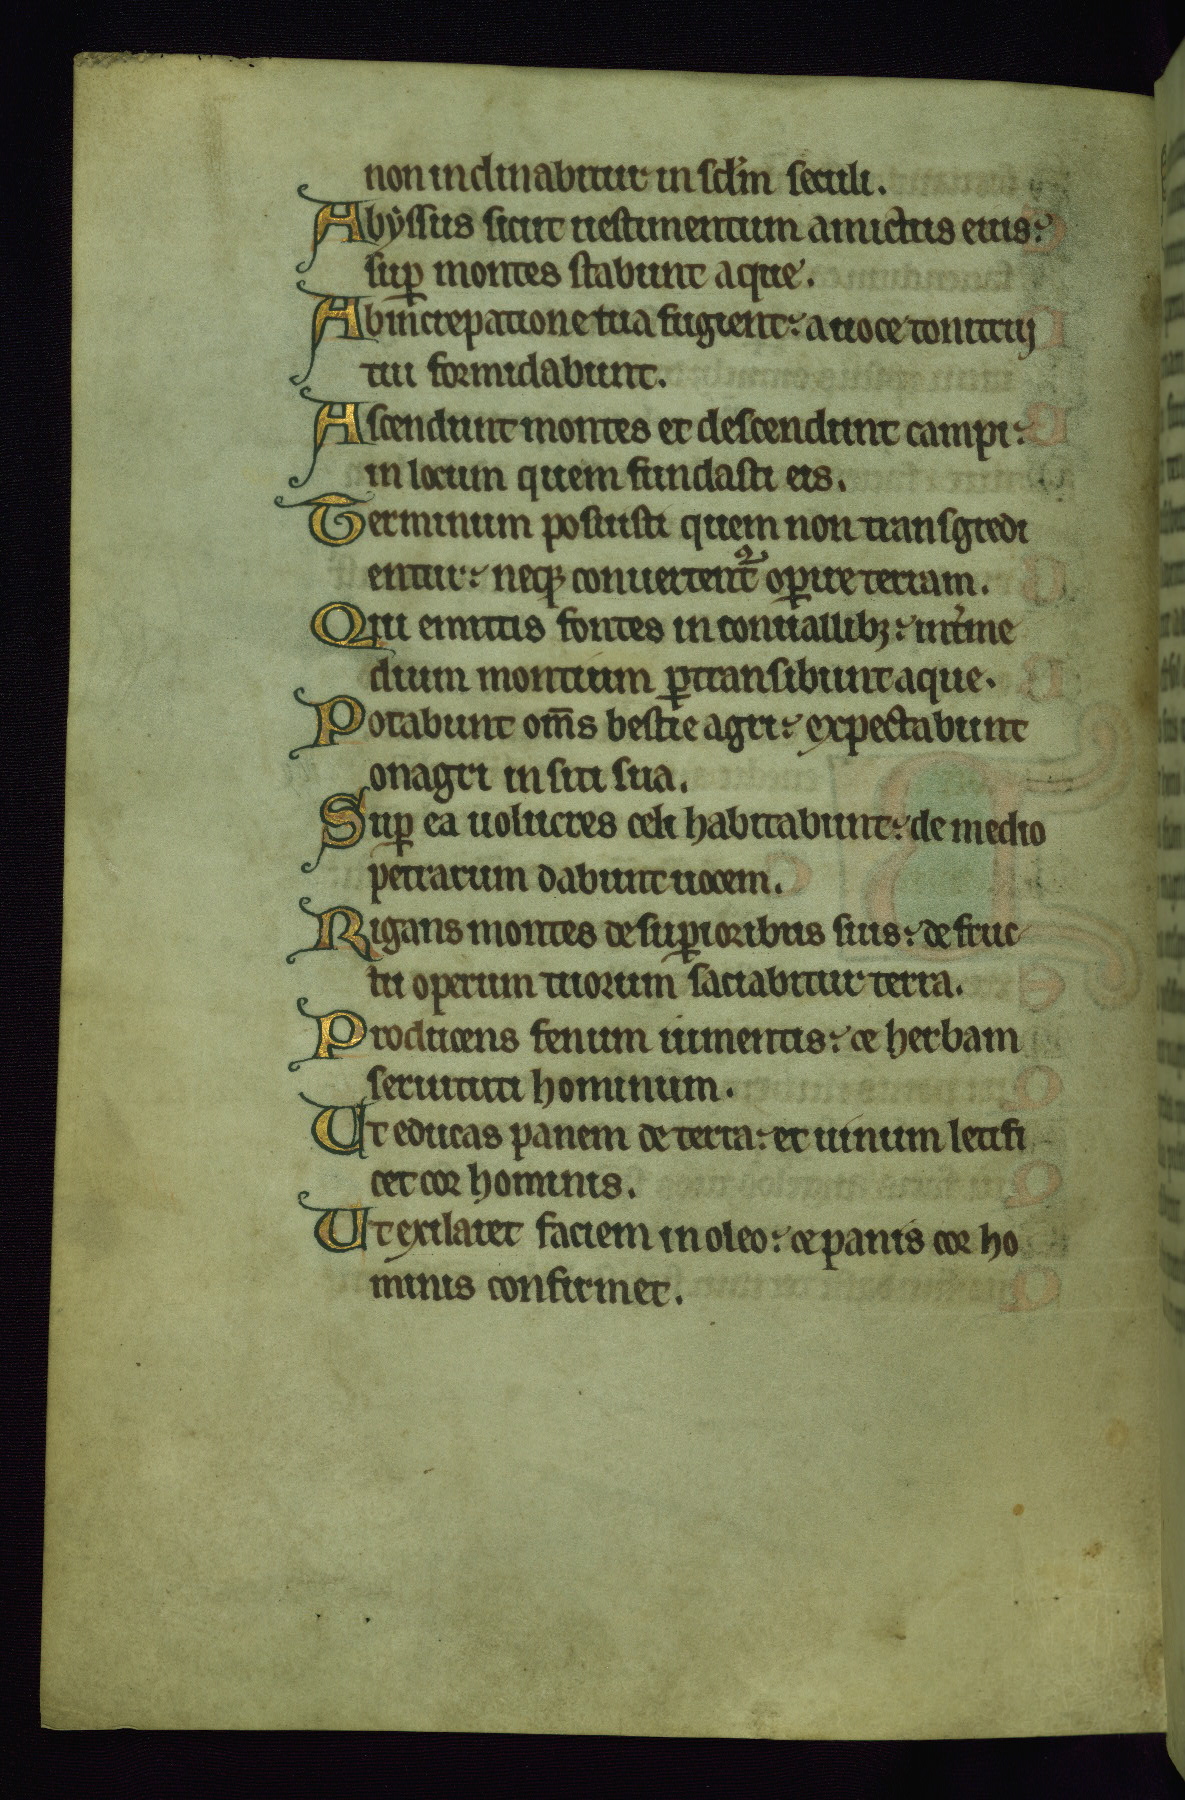 non inclinabitur in scl̅m seculi.
Abyssus sicut uestimentum amictus eius:
sup̲ montes stabunt aque.
Ab increpatione tua fugient: a uoce tonitrij
tui formidabunt.
Ascendunt montes et descendunt campi:
in locum quem fundasti eis.
Terminum posuisti quem non transgredi
entur: neqꝫ conuertent᷑ oꝑire terram.
Qui emittis fontes in conuallibꝫ: int̾me
dium montium ꝑtransibunt aque.
Potabunt om̅s bestie agri: expectabunt
onagri in siti sua.
Suꝑ ea uolucres celi habitabunt: de medio
petrarum dabunt uocem.
Rigans montes de suꝑioribus suis: de fruc
tu operum tuorum saciabitur terra.
Producens fenum iumentis: et herbam
seruituti hominum.
Ut educas panem de terra: et uinum letifi
cet cor hominis.
Ut exilaret faciem in oleo: et panis cor ho
minis confirmet.